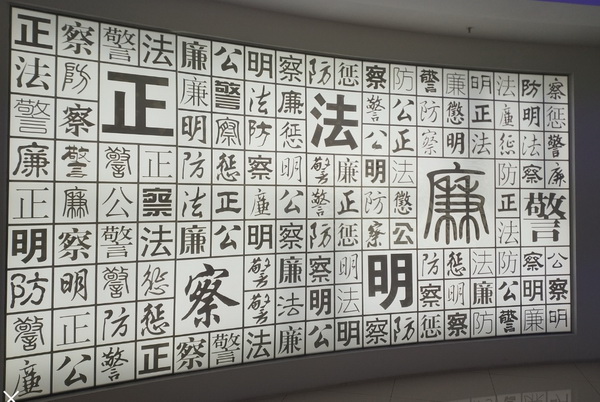 正察警法廉公明察防惩察防警廉明法防察
法防正廉警法廉法惩警公防惩正廉察惩
警察明察防惩公正察明法惩明警
廉警警正防惩察明警廉明法廉防察廉
正廉公察法正廉警警正防惩正警
明察警法廉公明察防惩察公法
防明警惩察警廉察明明防惩法防察公
警正防惩警法明法察明廉公明察
廉公警正察警法廉公明察防惩察防警廉明